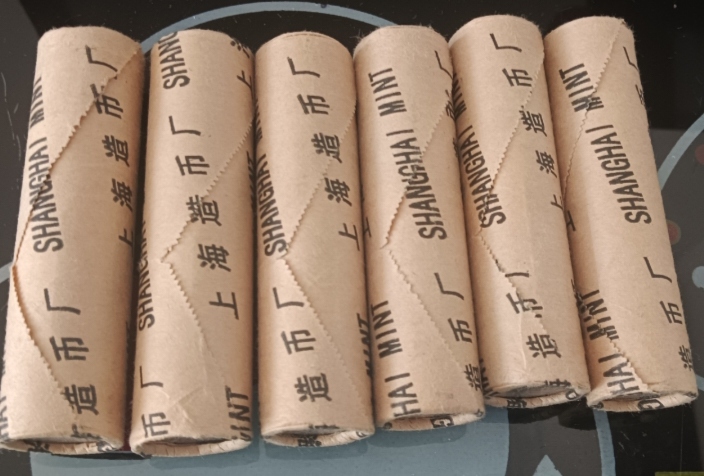 SHANGHAI MINT
上海造币厂
造币厂
SHANG
上海造币厂
SHANGHAI
币厂
MINT
上海造币厂
SHANGHAI
造币厂
MINT
SHANGHAI MINT
币厂
HAI MINT
上海造币厂
SHANGHAI
造币厂
SHANGHAI MINT
币厂
HAI MINT